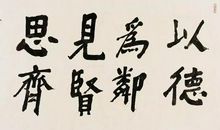 以德
為鄰
見賢
思齊